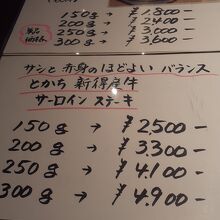 150g → ¥1.800-
200g → ¥2.400-
250g → ¥3.000-
300g → ¥3.600-
サシと赤身のほどよい バランス
とかち 新得産牛
サーロイン ステーキ
150g → ¥2,500-
200g → ¥3.300-
250g → ¥4.100-
300g → ¥4.900-